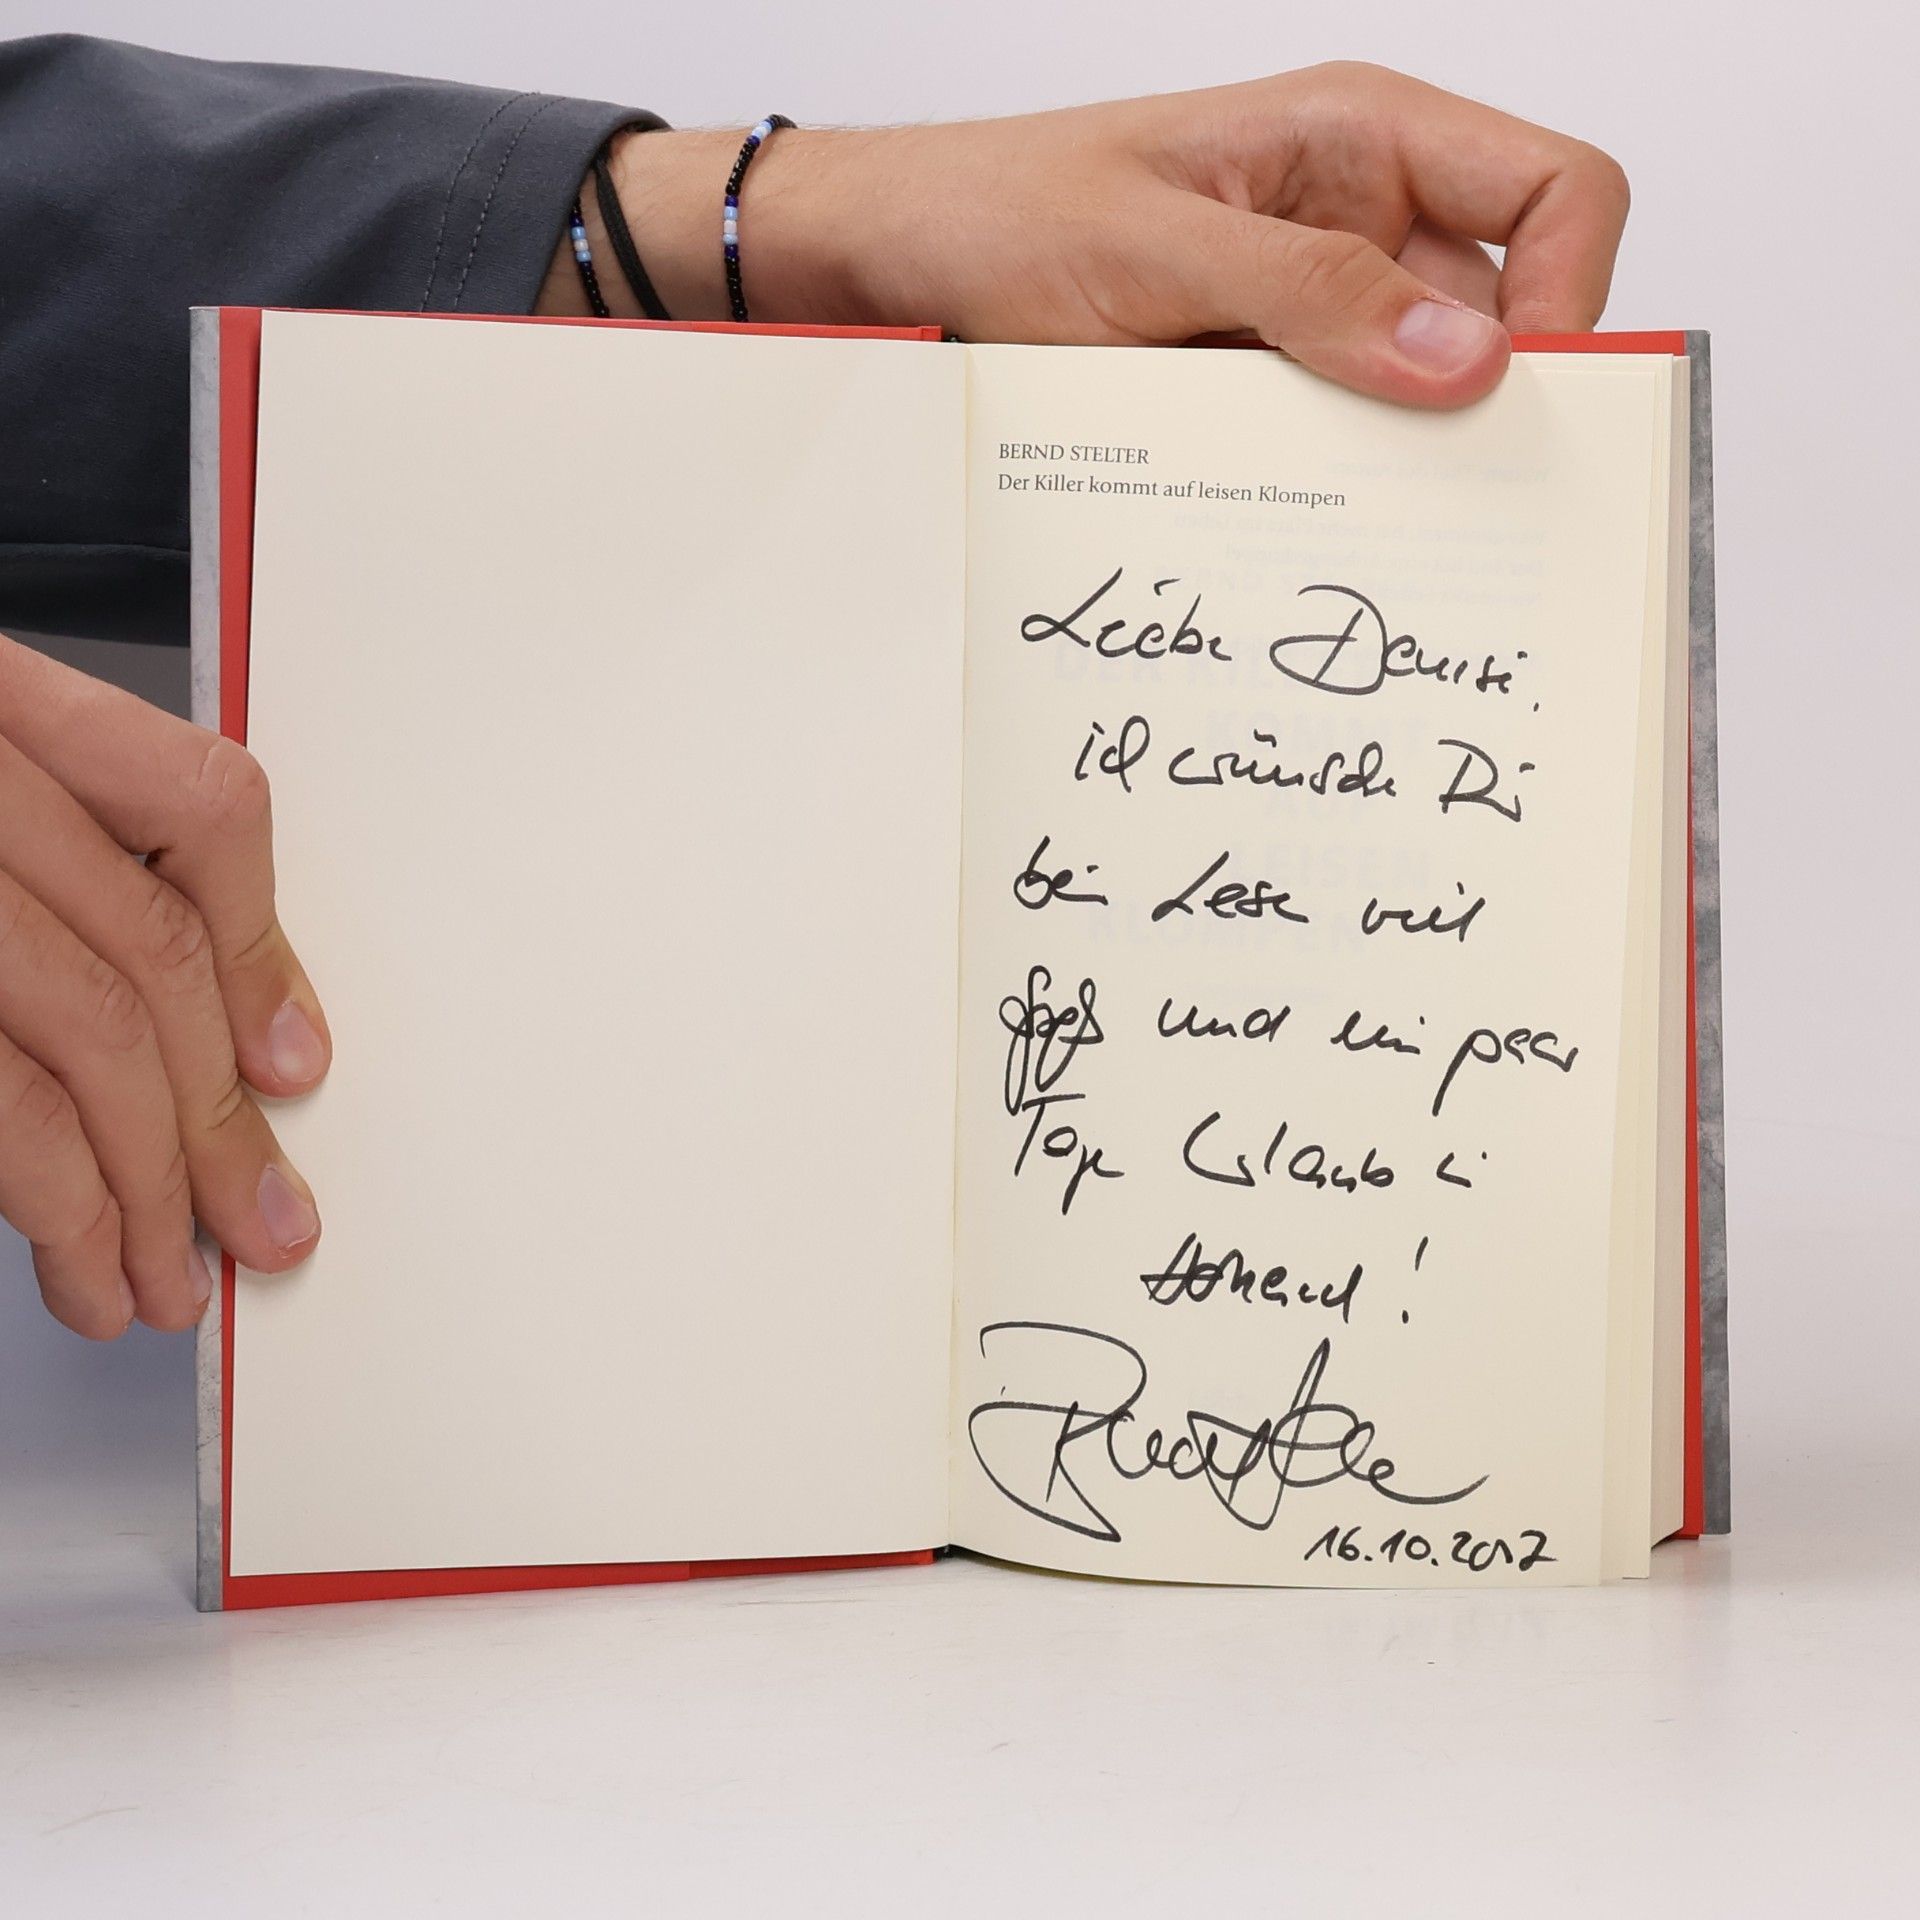 BERND STELTER
Der Killer kommt auf leisen Klompen
Liebe Denise,
ich wünsche Dir
beim Lesen viel
Spaß und ein paar
Tage Urlaub in
Holland!
16.10.2017